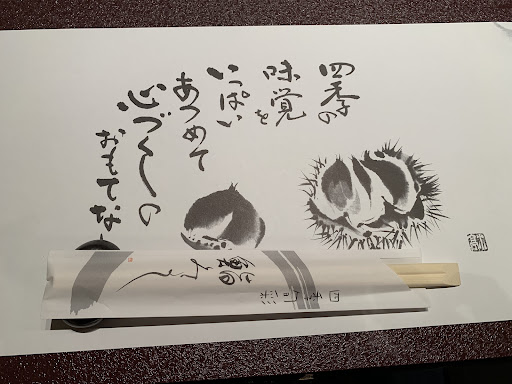 四季の
味覚を
いっぱい
あつめて
心づくしの
おもてなし